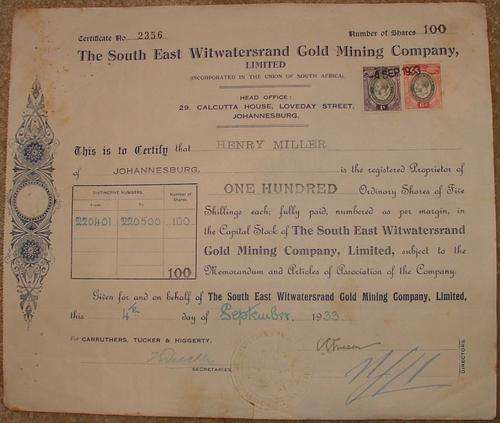 Certificate No. 2356
Number of Shares 100
The South East Witwatersrand Gold Mining Company,
LIMITED
(INCORPORATED IN THE UNION OF SOUTH AFRICA).
4 SEP 1933
HEAD OFFICE:
29, CALCUTTA HOUSE, LOVEDAY STREET,
JOHANNESBURG.
This is to Certify that HENRY MILLER
of JOHANNESBURG, is the registered Proprietor of
ONE HUNDRED Ordinary Shares of Five
Shillings each, fully paid, numbered as per margin, in
the Capital Stock of The South East Witwatersrand
Gold Mining Company, Limited, subject to the
Memorandum and Articles of Association of the Company.
DISTINCTIVE NUMBERS.
Number of Shares
From To
220401 220500 100
100
Given for and on behalf of The South East Witwatersrand Gold Mining Company, Limited,
this 4th day of September, 1933.
For CARRUTHERS, TUCKER & HIGGERTY.
SECRETARIES
DIRECTORS.